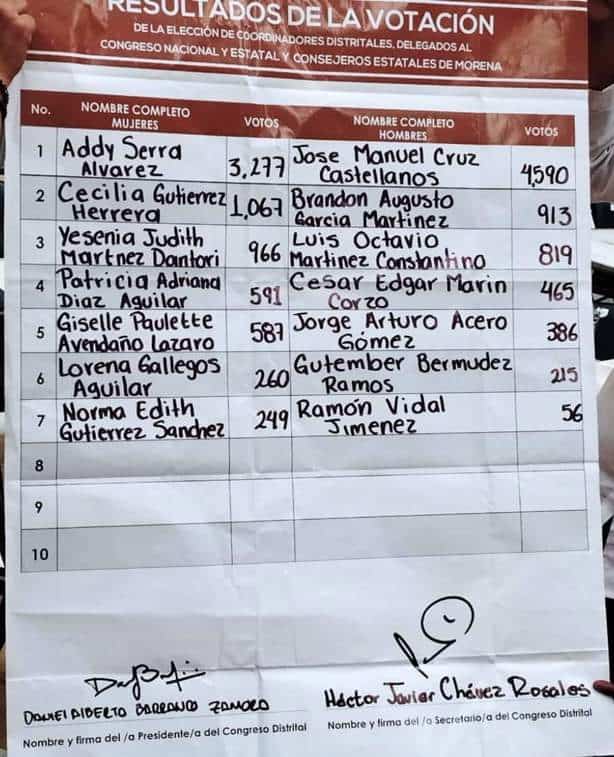 RESULTADOS DE LA VOTACIÓN
DE LA ELECCIÓN DE COORDINADORES DISTRITALES, DELEGADOS AL
CONGRESO NACIONAL Y ESTATAL Y CONSEJEROS ESTATALES DE MORENA
No. NOMBRE COMPLETO MUJERES VOTOS NOMBRE COMPLETO HOMBRES VOTOS
1 Addy Serra Alvarez 3,277 Jose Manuel Cruz Castellanos 4,590
2 Cecilia Gutierrez Herrera 1,067 Brandon Augusto Garcia Martinez 913
3 Yesenia Judith Martnez Dantori 966 Luis Octavio Martinez Constantino 819
4 Patricia Adriana Diaz Aguilar 591 Cesar Edgar Marin Corzo 465
5 Giselle Paulette Avendaño Lazaro 587 Jorge Arturo Acero Gómez 386
6 Lorena Gallegos Aguilar 260 Gutember Bermudez Ramos 215
7 Norma Edith Gutierrez Sanchez 249 Ramón Vidal Jimenez 56
8
9
10
DANIEL ALBERTO BARRANCO ZAMORA
Nombre y firma del /a Presidente/a del Congreso Distrital
Héctor Javier Chávez Rosales
Nombre y firma del /a Secretario/a del Congreso Distrital